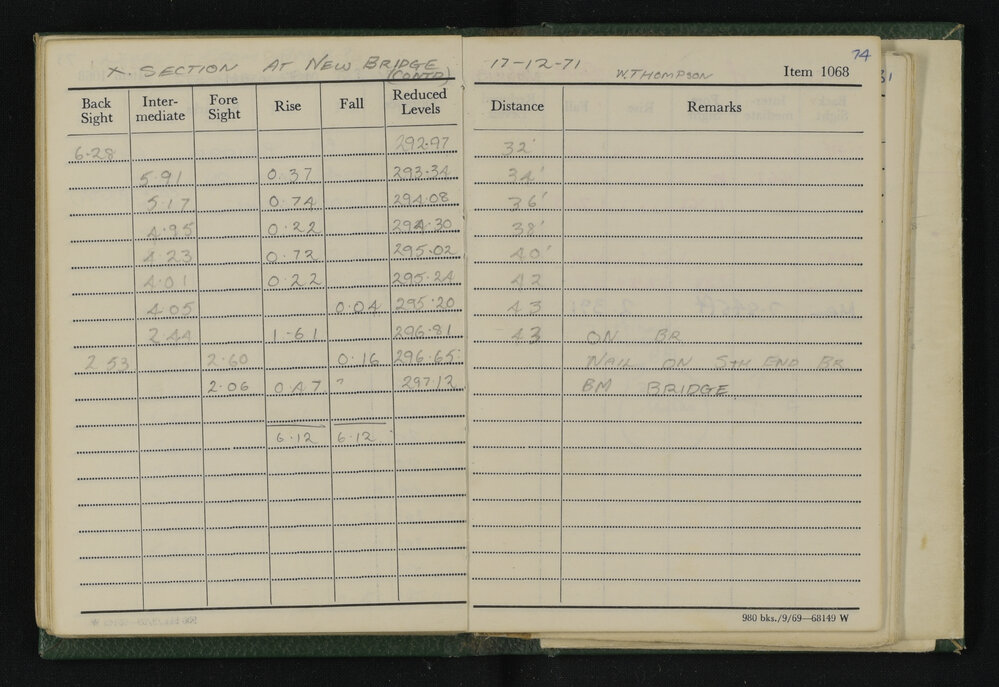 X. SECTION AT NEW BRIDGE (CONTD)
17-12-71 W. THOMPSON Item 1068 74
Back Sight Inter-mediate Fore Sight Rise Fall Reduced Levels Distance Remarks
6.28 292.97 32'
5.91 0.37 293.34 34'
5.17 0.74 294.08 36'
4.95 0.22 294.30 38'
4.23 0.72 295.02 40'
4.01 0.22 295.24 42
4.05 0.04 295.20 43
2.44 1.61 296.81 43 ON BR
2.53 2.60 0.16 296.65 NAIL ON STH END BR
2.06 0.47 " 297.12 BM BRIDGE
6.12 6.12
980 bks./9/69—68149 W